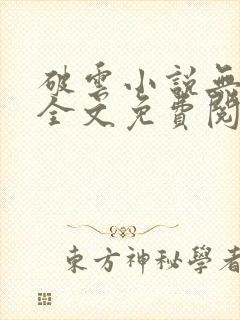 破雲小説無
全文免費閱
東方神秘學者